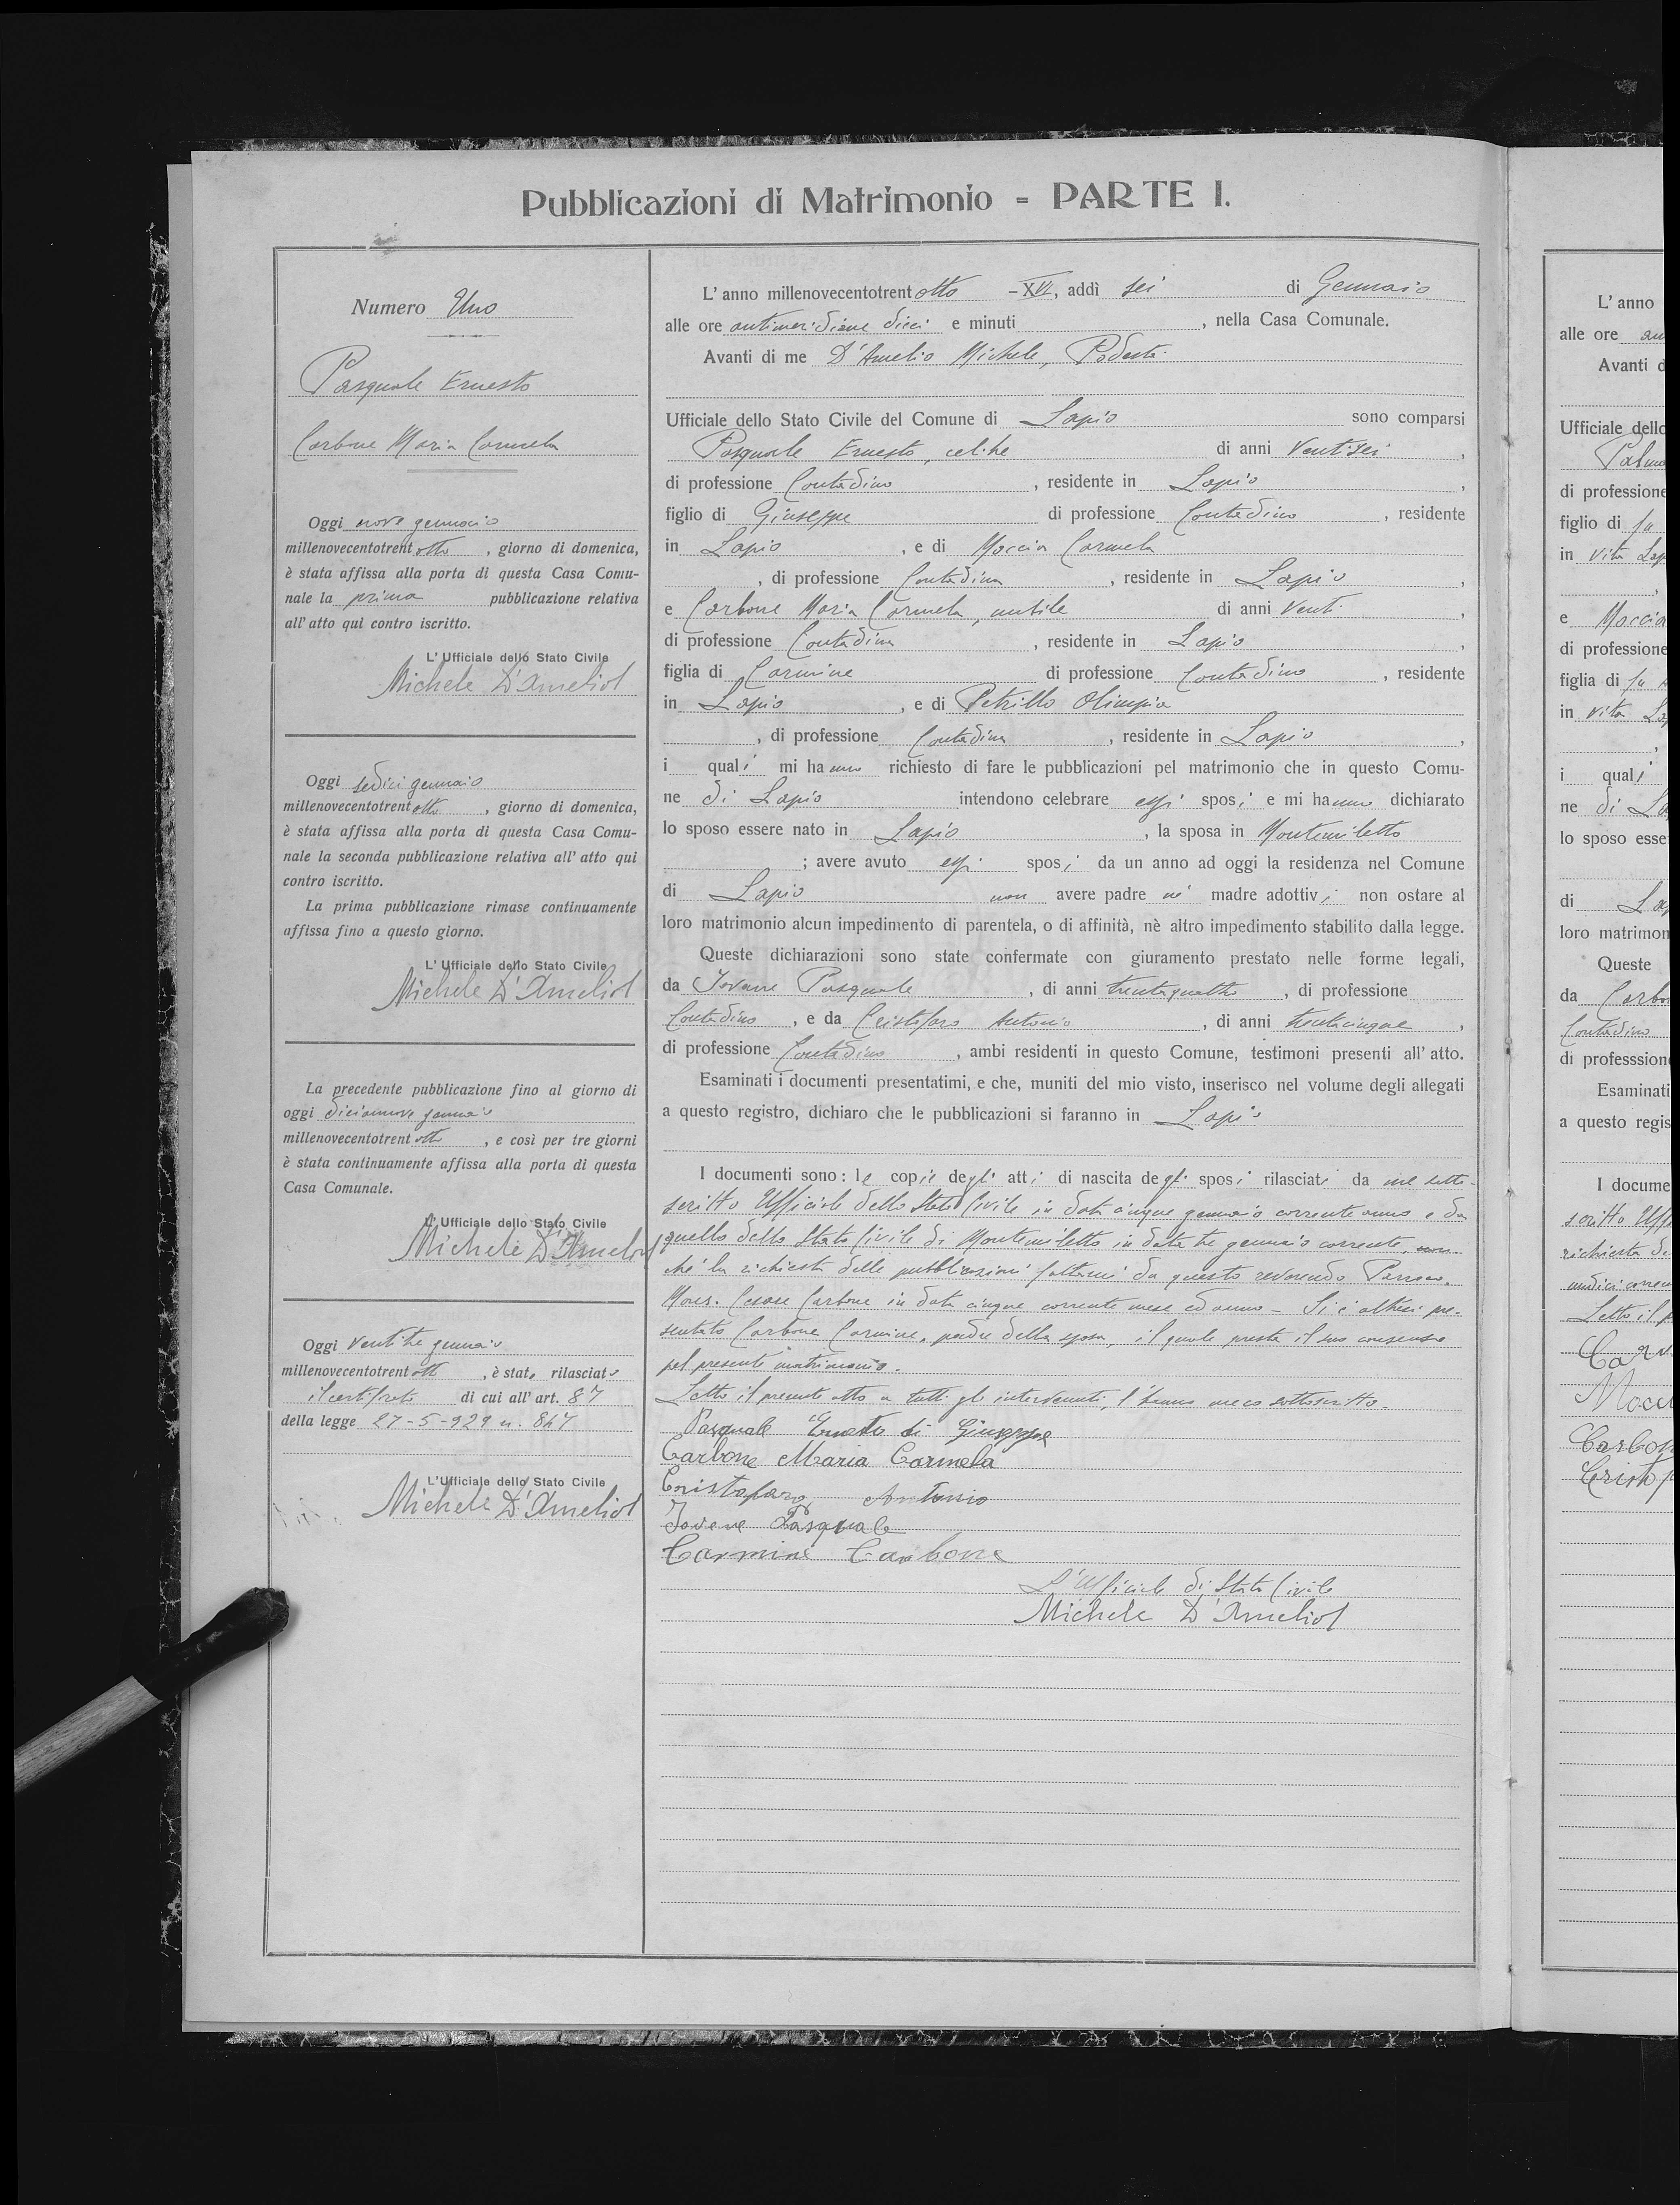 Pubblicazioni di Matrimonio - PARTE I.
Numero Uno
Pasquale Ernesto
Carbone Maria Carmela
Oggi nove gennaio
millenovecentotrentotto, giorno di domenica,
è stata affissa alla porta di questa Casa Comu-
nale la prima pubblicazione relativa
all'atto qui contro iscritto.
L'Ufficiale dello Stato Civile
Michele D'Amelio
Oggi sedici gennaio
millenovecentotrentotto, giorno di domenica,
è stata affissa alla porta di questa Casa Comu-
nale la seconda pubblicazione relativa all'atto qui
contro iscritto.
La prima pubblicazione rimase continuamente
affissa fino a questo giorno.
L'Ufficiale dello Stato Civile
Michele D'Amelio
La precedente pubblicazione fino al giorno di
oggi diciannove gennaio
millenovecentotrentotto, e così per tre giorni
è stata continuamente affissa alla porta di questa
Casa Comunale.
L'Ufficiale dello Stato Civile
Michele D'Amelio
Oggi ventitre gennaio
millenovecentotrentotto, è stato rilasciato
il certificato di cui all'art. 87
della legge 27-5-929 n. 847
L'Ufficiale dello Stato Civile
Michele D'Amelio
L'anno millenovecentotrentotto - XVI, addì sei di Gennaio
alle ore antimeridiane dieci e minuti , nella Casa Comunale.
Avanti di me D'Amelio Michele, Podestà
Ufficiale dello Stato Civile del Comune di Lapio sono comparsi
Pasquale Ernesto, celibe di anni ventisei,
di professione Contadino, residente in Lapio,
figlio di Giuseppe di professione Contadino, residente
in Lapio, e di Moccia Carmela
, di professione Contadina, residente in Lapio,
e Carbone Maria Carmela, nubile di anni venti,
di professione Contadina, residente in Lapio,
figlia di Carmine di professione Contadino, residente
in Lapio, e di Petrillo Olimpia
, di professione Contadina, residente in Lapio,
i quali mi hanno richiesto di fare le pubblicazioni pel matrimonio che in questo Comu-
ne di Lapio intendono celebrare essi sposi e mi hanno dichiarato
lo sposo essere nato in Lapio, la sposa in Montemiletto
; avere avuto essi sposi da un anno ad oggi la residenza nel Comune
di Lapio non avere padre nè madre adottivi non ostare al
loro matrimonio alcun impedimento di parentela, o di affinità, nè altro impedimento stabilito dalla legge.
Queste dichiarazioni sono state confermate con giuramento prestato nelle forme legali,
da Iovane Pasquale, di anni trentaquattro, di professione
Contadino, e da Cristofaro Antonio, di anni trentacinque,
di professione Contadino, ambi residenti in questo Comune, testimoni presenti all'atto.
Esaminati i documenti presentatimi, e che, muniti del mio visto, inserisco nel volume degli allegati
a questo registro, dichiaro che le pubblicazioni si faranno in Lapio
I documenti sono: le copie degli atti di nascita degli sposi rilasciati da me sotto-
scritto Ufficiale dello Stato Civile in data cinque gennaio corrente anno e da
quello dello Stato Civile di Montemiletto in data tre gennaio corrente, non
chè la richiesta delle pubblicazioni fattami da questo reverendo Parroco.
Mons. Cesare Carbone in data cinque corrente mese ed anno - Si è altresì pre-
sentato Carbone Carmine, padre della sposa, il quale presta il suo consenso
pel presente matrimonio.
Letto il presente atto a tutti gli intervenuti, l'hanno meco sottoscritto.
Pasquale Ernesto di Giuseppe
Carbone Maria Carmela
Cristofaro Antonio
Iovane Pasquale
Carmine Carbone
L'Ufficiale di Stato Civile
Michele D'Amelio
L'anno
alle ore
Avanti d
Ufficiale dello
di professione
figlio di fu
in vita Lap
e Moccia
di professione
figlia di fu
in vita La
i quali
ne di La
lo sposo esse
di Lap
loro matrimon
Queste
da Carbo
Contadino
di professsion
Esaminati
a questo regis
I docume
scritto Uffi
richiesta de
undici corren
Letto il p
Car
Mocci
Carbon
Cristof